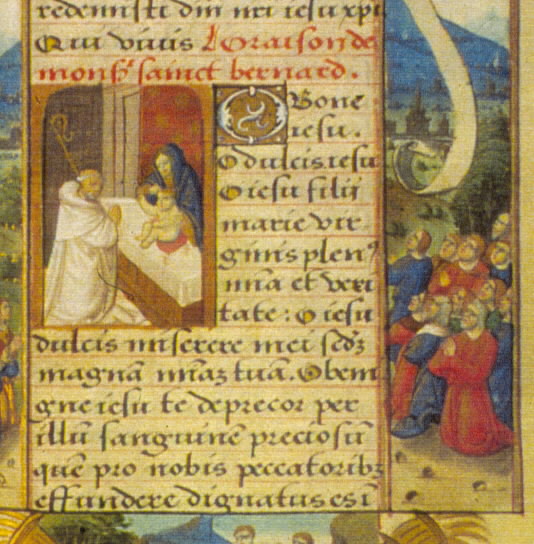 redemisti dñi nr̃i iesu xp̃i
Qui viuis L'Oraison de
mons.r sainct bernard.
O Bone
iesu.
O dulcis iesu
O iesu filij
marie vir
ginis plenꝰ
mia et veri
tate: O iesu
dulcis miserere mei scd̃z
magnã miaz tuã. O beni
gne iesu te deprecor per
illũ sanguinẽ preciosũ
quẽ pro nobis peccatoribꝫ
effundere dignatus es ĩ